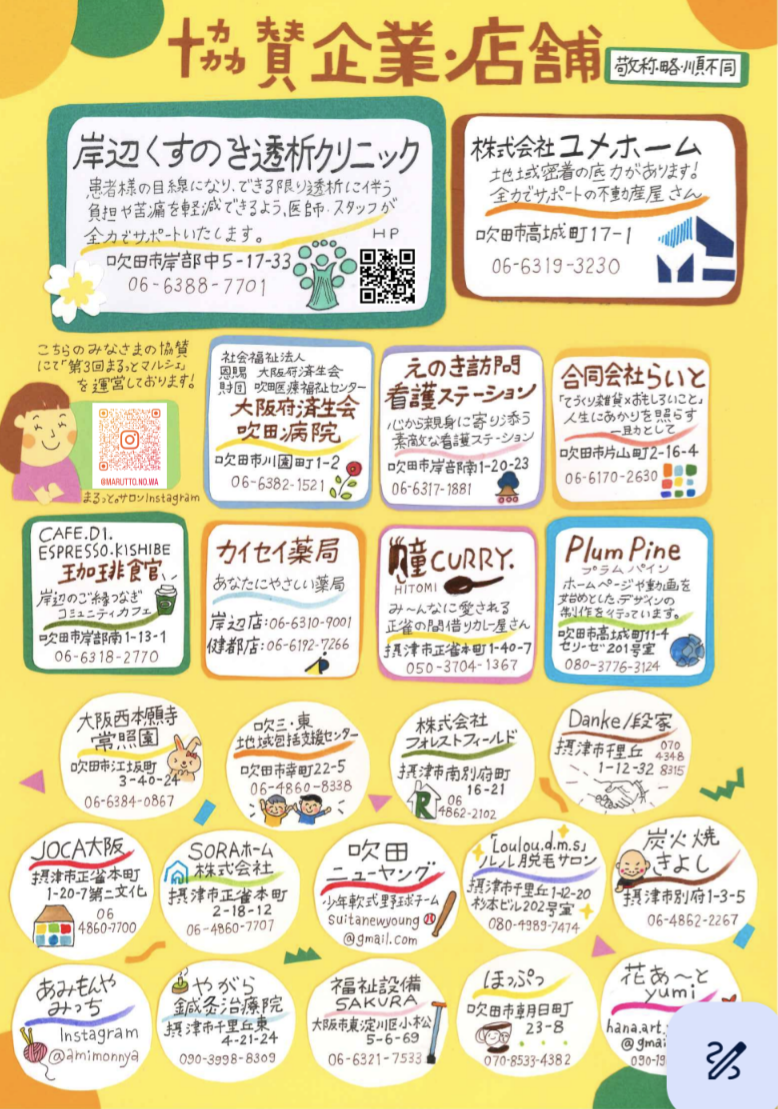 協賛企業・店舗
敬称略・順不同
岸辺くすのき透析クリニック
患者様の目線になり、できる限り透析に伴う
負担や苦痛を軽減できるよう、医師・スタッフが
全力でサポートいたします。
HP
吹田市岸部中5-17-33
06-6388-7701
株式会社ユメホーム
地域密着の底力があります!
全力でサポートの不動産屋さん
吹田市高城町17-1
06-6319-3230
こちらのみなさまの協賛
にて「第3回まるっとマルシェ」
を運営しております!
@MARUTTO.NO.WA
まるっと。サロンInstagram
社会福祉法人
恩賜 大阪府済生会
財団 吹田医療福祉センター
大阪府済生会
吹田病院
吹田市川園町1-2
06-6382-1521
えのき訪問
看護ステーション
心から親身に寄り添う
素敵な看護ステーション
吹田市岸部南1-20-23
06-6317-1881
合同会社らいと
「てづくり雑貨×おもしろいこと」
人生にあかりを照らす
一助として
吹田市片山町2-16-4
06-6170-2630
CAFE.D1.
ESPRESSO.KISHIBE
珈琲食官
岸辺のご縁つなぎ
コミュニティカフェ
吹田市岸部南1-13-1
06-6318-2770
カイセイ薬局
あなたにやさしい薬局
岸辺店:06-6310-9001
健都店:06-6192-7266
瞳CURRY.
HITOMI
み〜んなに愛される
正雀の間借りカレー屋さん
摂津市正雀本町1-40-7
050-3704-1367
Plum Pine
プラムパイン
ホームページや動画を
始めとした、デザインの
制作を行っています。
吹田市高城町11-4
セリーゼ201号室
080-3776-3124
大阪西本願寺
常照園
吹田市江坂町
3-40-24
06-6384-0867
吹三・東
地域包括支援センター
吹田市幸町22-5
06-4860-8338
株式会社
フォレストフィールド
摂津市南別府町
16-21
06
4862-2102
R
Danke/段家
摂津市千里丘
1-12-32
070
4348
8315
JOCA大阪
摂津市正雀本町
1-20-7第二文化
06
4860-7700
SORAホーム
株式会社
摂津市正雀本町
2-18-12
06-4860-7707
吹田
ニューヤング
少年軟式野球チーム
suitanewyoung
@gmail.com
「Loulou.d.m.s」
ルル脱毛サロン
摂津市千里丘1-12-20
杉本ビル202号室
080-4989-7474
炭火焼
きよし
摂津市別府1-3-5
06-4862-2267
あみもんや
みっち
Instagram
@amimonnya
やがら
鍼灸治療院
摂津市千里丘東
4-21-24
090-3998-8309
福祉設備
SAKURA
大阪市東淀川区小松
5-6-69
06-6321-7533
ほっぷっ
吹田市朝日町
23-8
070-8533-4382
花あ〜と
yumi
hanaart.
@gmai
090-19